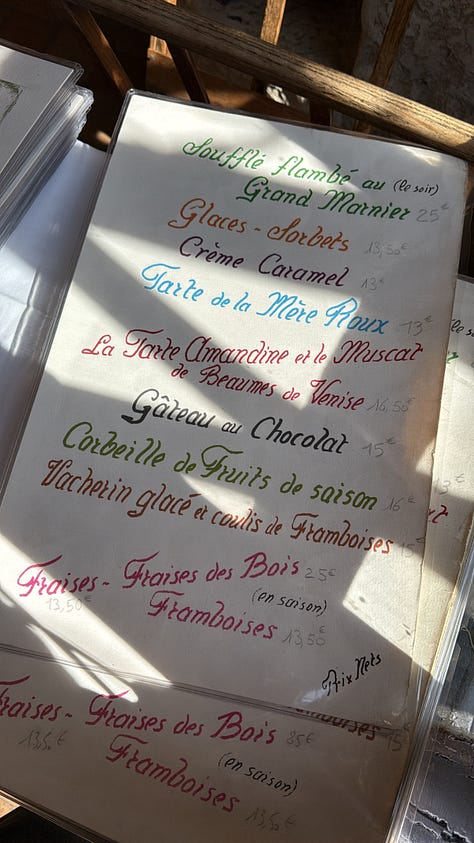 Soufflé flambé au (le soir)
Grand Marnier 25€
Glaces - Sorbets 13,50€
Crème Caramel 13€
Tarte de la Mère Roux 13€
La Tarte Amandine et le Muscat
de Beaumes de Venise 16,50€
Gâteau au Chocolat 15€
Corbeille de Fruits de saison 16€
Vacherin glacé et coulis de Framboises 15€
Fraises - Fraises des Bois 25€
13,50€ (en saison)
Framboises 13,50€
Prix Nets
Framboises 15€
Fraises - Fraises des Bois 25€
13,50€ (en saison)
Framboises 13,50€